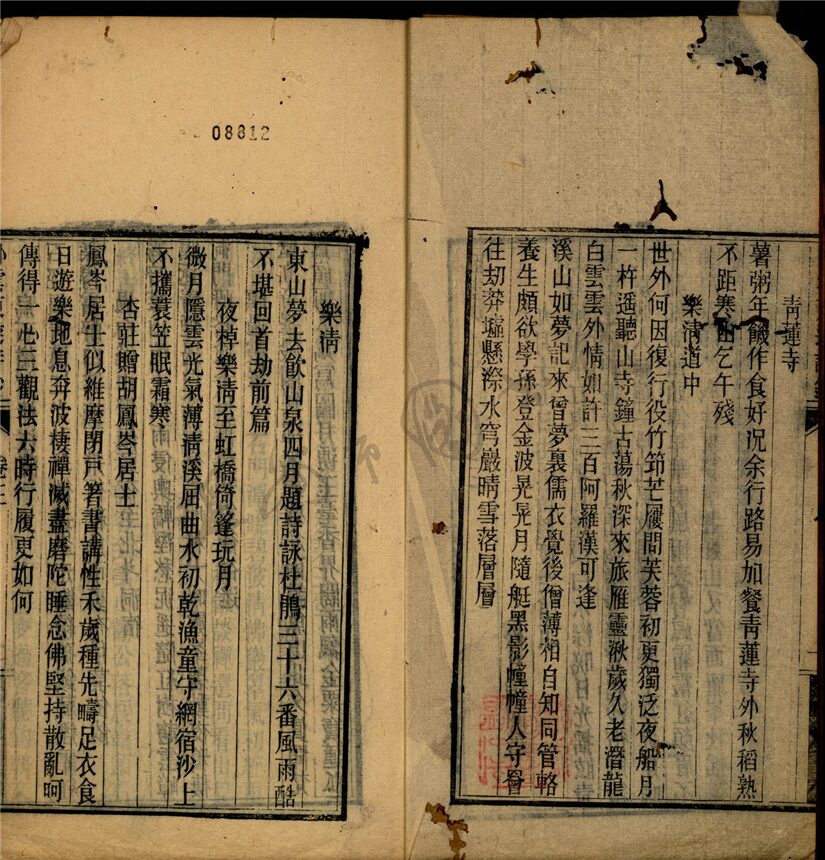 靑蓮寺
薯粥年饑作食好況余行路易加餐靑蓮寺外秋稻熟
不距寒山乞午殘
樂淸道中
世外何因復行役竹筇芒屨問芙蓉初更獨泛夜船月
一杵遥聽山寺鐘古蕩秋深來旅雁靈湫歲久老潛龍
白雲雲外情如許三百阿羅漢可逢
溪山如夢記來曾夢裏儒衣覺後僧薄相自知同管輅
養生頗欲學孫登金波晃晃月隨艇黑影幢幢人守罾
往劫莽墟懸漈水穹巖晴雪落層層
08812
樂淸
東山夢去飮山泉四月題詩詠杜鵑三十六番風雨酷
不堪回首劫前篇
夜棹樂淸至虹橋倚篷玩月
微月隱雲光氣薄淸溪屈曲水初乾漁童守網宿沙上
不攜蓑笠眠霜寒
杏莊贈胡鳳岑居士
鳳岑居士似維摩閉戸箸書講性禾歲種先疇足衣食
日遊樂地息奔波棲禪滅盡磨陀睡念佛堅持散亂呵
傳得一心三觀法六時行履更如何
卷三